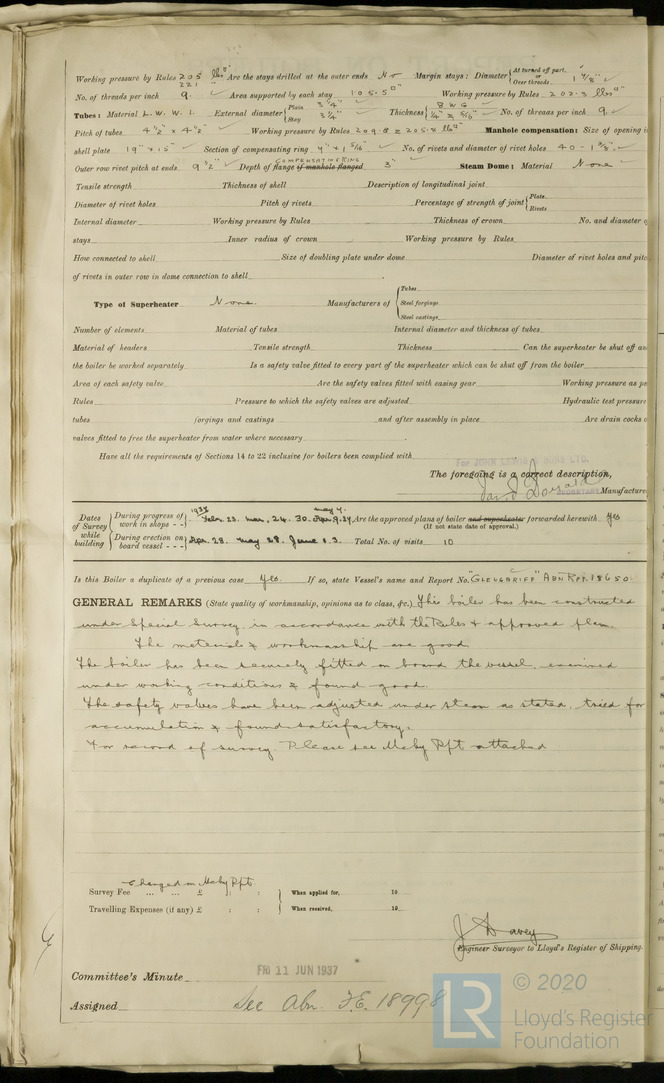 Working pressure by Rules 205 221 lbs□" Are the stays drilled at the outer ends No Margin stays: Diameter { At turned off part, or Over threads 1 7/8"
No. of threads per inch 9. Area supported by each stay 105.5□" Working pressure by Rules 202.3 lbs□"
Tubes: Material L.W.W.I. External diameter { Plain 3 1/4" Stay 3 1/4" Thickness { 8 WG 1/4" & 5/16" No. of threads per inch 9
Pitch of tubes 4 1/2" x 4 1/2" Working pressure by Rules 209.8 & 205.8 lbs□" Manhole compensation: Size of opening i
shell plate 19" x 15" Section of compensating ring 4" x 1 5/16" No. of rivets and diameter of rivet holes 40 - 1 3/8"
Outer row rivet pitch at ends 9 1/2" Depth of COMPENSATING RING flange if manhole flanged 3" Steam Dome: Material None
Tensile strength Thickness of shell Description of longitudinal joint
Diameter of rivet holes Pitch of rivets Percentage of strength of joint { Plate Rivets
Internal diameter Working pressure by Rules Thickness of crown No. and diameter o
stays Inner radius of crown Working pressure by Rules
How connected to shell Size of doubling plate under dome Diameter of rivet holes and pitc
of rivets in outer row in dome connection to shell
Type of Superheater None. Manufacturers of { Tubes Steel forgings Steel castings
Number of elements Material of tubes Internal diameter and thickness of tubes
Material of headers Tensile strength Thickness Can the superheater be shut off an
the boiler be worked separately Is a safety valve fitted to every part of the superheater which can be shut off from the boiler
Area of each safety valve Are the safety valves fitted with easing gear Working pressure as pe
Rules Pressure to which the safety valves are adjusted Hydraulic test pressure
tubes forgings and castings and after assembly in place Are drain cocks o
valves fitted to free the superheater from water where necessary
Have all the requirements of Sections 14 to 22 inclusive for boilers been complied with
For JOHN LEWIS & SONS LTD.
The foregoing is a correct description,
David Donald SECRETARY Manufacture
Dates of Survey while building { During progress of work in shops - - } Feb. 23. Mar. 24. 30. Apr. 9. 27. May 4. Are the approved plans of boiler and superheater forwarded herewith Yes (If not state date of approval.)
During erection on board vessel - - - } Apr. 28. May 28. June 1. 3. Total No. of visits 10
Is this Boiler a duplicate of a previous case Yes. If so, state Vessel's name and Report No. "GLENGARIFF" ABN RPT. 18650.
GENERAL REMARKS (State quality of workmanship, opinions as to class, &c.) This boiler has been constructed
under Special Survey in accordance with the Rules & approved plan.
The materials & workmanship are good.
The boiler has been securely fitted on board the vessel, examined
under working conditions & found good.
The safety valves have been adjusted under steam as stated, tried for
accumulation & found satisfactory.
For record of survey. Please see Mchy Rpt attached
Charged on Mchy Rpt.
Survey Fee ... ... £ : : } When applied for, 19
Travelling Expenses (if any) £ : : } When received, 19
J Davey
Engineer Surveyor to Lloyd's Register of Shipping.
Committee's Minute FRI 11 JUN 1937
Assigned See Abn. F.E. 18998
LR © 2020
Lloyd's Register
Foundation